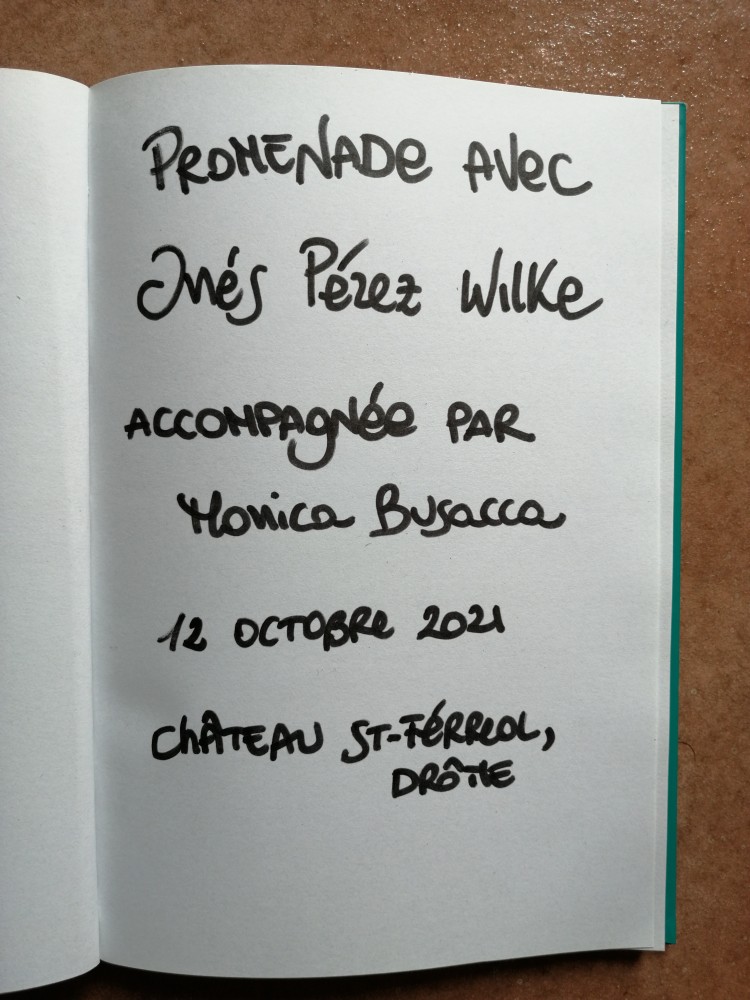 PROMENADE AVEC
Inés Pérez Wilke
ACCOMPAGNÉE PAR
Monica Busacca
12 OCTOBRE 2021
CHÂTEAU ST-FÉRREOL,
DRÔME